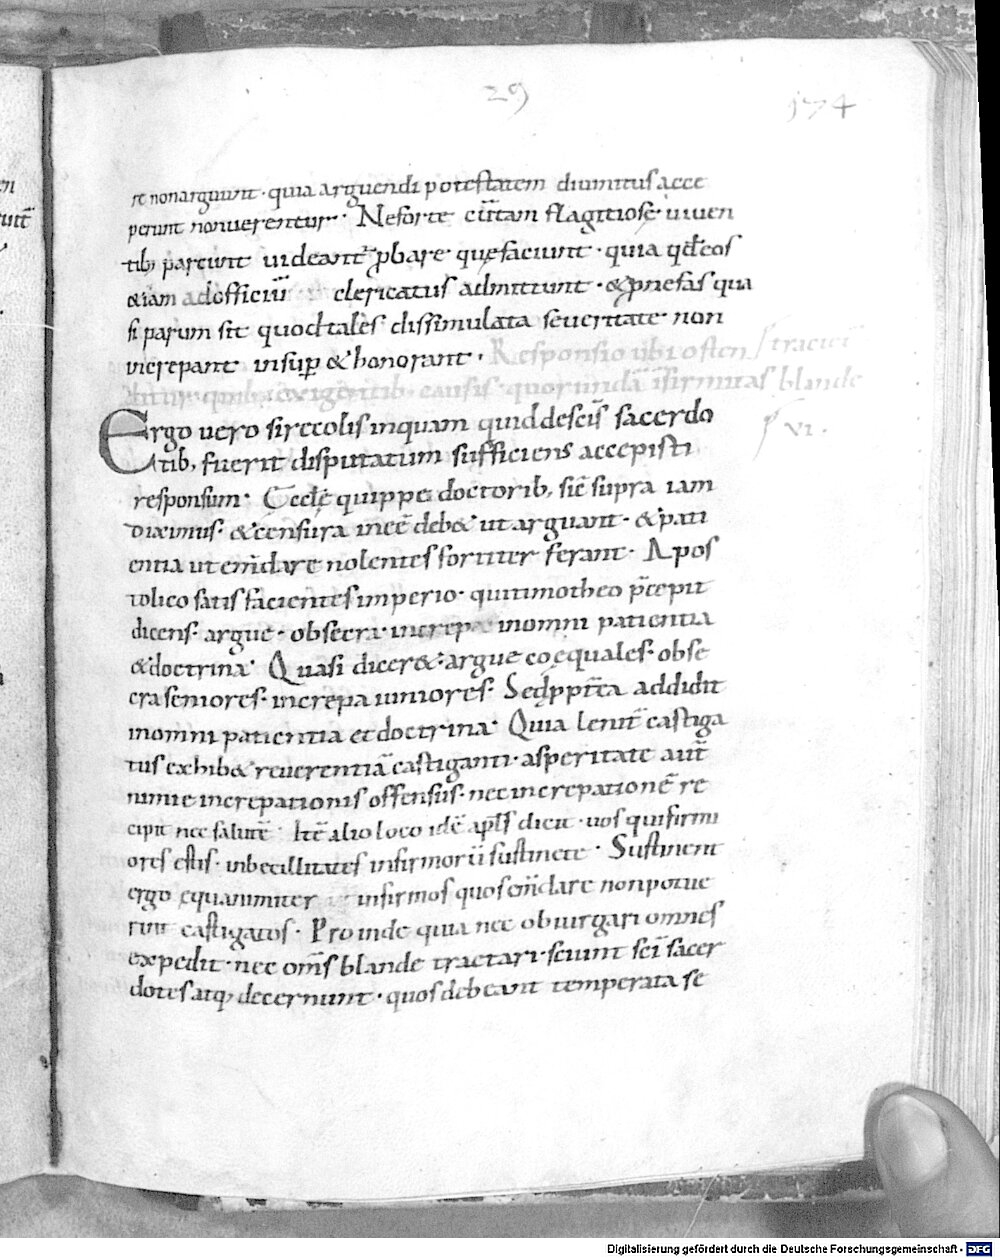 29
174
re non arguunt · quia arguendi potestatem diuinitus acce
perunt non uerentur · Ne forte etiam flagitiose uiuen
tib; parcunt uideant̄ ꝓbare quę faciunt · quia qđ eos
&iam ad officiū clericatus admittunt · & ꝓ nefas qua
si parum sit quod tales dissimulata seueritate non
increpant insuꝑ & honorant ·
Responsio ubi osten
tractari
bitur quib; exigentib; causis quorundā infirmitas blande
vi ·
Ergo uero si recolis inquam quid de scīs sacerdo
tib; fuerit disputatum sufficiens accepisti
responsum · Eccłę quippe doctorib; sic̄ supra iam
diximus · & censura inee deb& ut arguant · & pati
entia ut em̄dare nolentes fortiter ferant · Apos
tolico satisfacientes imperio · qui timotheo p̄cepit
dicens · argue · obsecra · increpa in omni patientia
& doctrina · Quasi dicer& · argue coęquales · obse
cra seniores · increpa iuniores · Sed ꝓpt̄ea addidit
in omni patientia et doctrina · Quia lenit̄ castiga
tus exhib& reuerentiā castiganti · asperitate aut̄
nimie increpationis offensus · nec increpationē re
cipit nec salutē · Itē alio loco idē apłs dicit · uos qui firmi
ores estis · inbecillitates infirmorū sustinete · Sustinent
ergo ęquanimiter infirmos quos em̄dare non potue
runt castigatos · Proinde quia nec obiurgari omnes
expedit · nec om̄s blande tractari · sciunt sc̄i sacer
dotes atq; decernunt · quos debeant temperata se
Digitalisierung gefördert durch die Deutsche Forschungsgemeinschaft - DFG